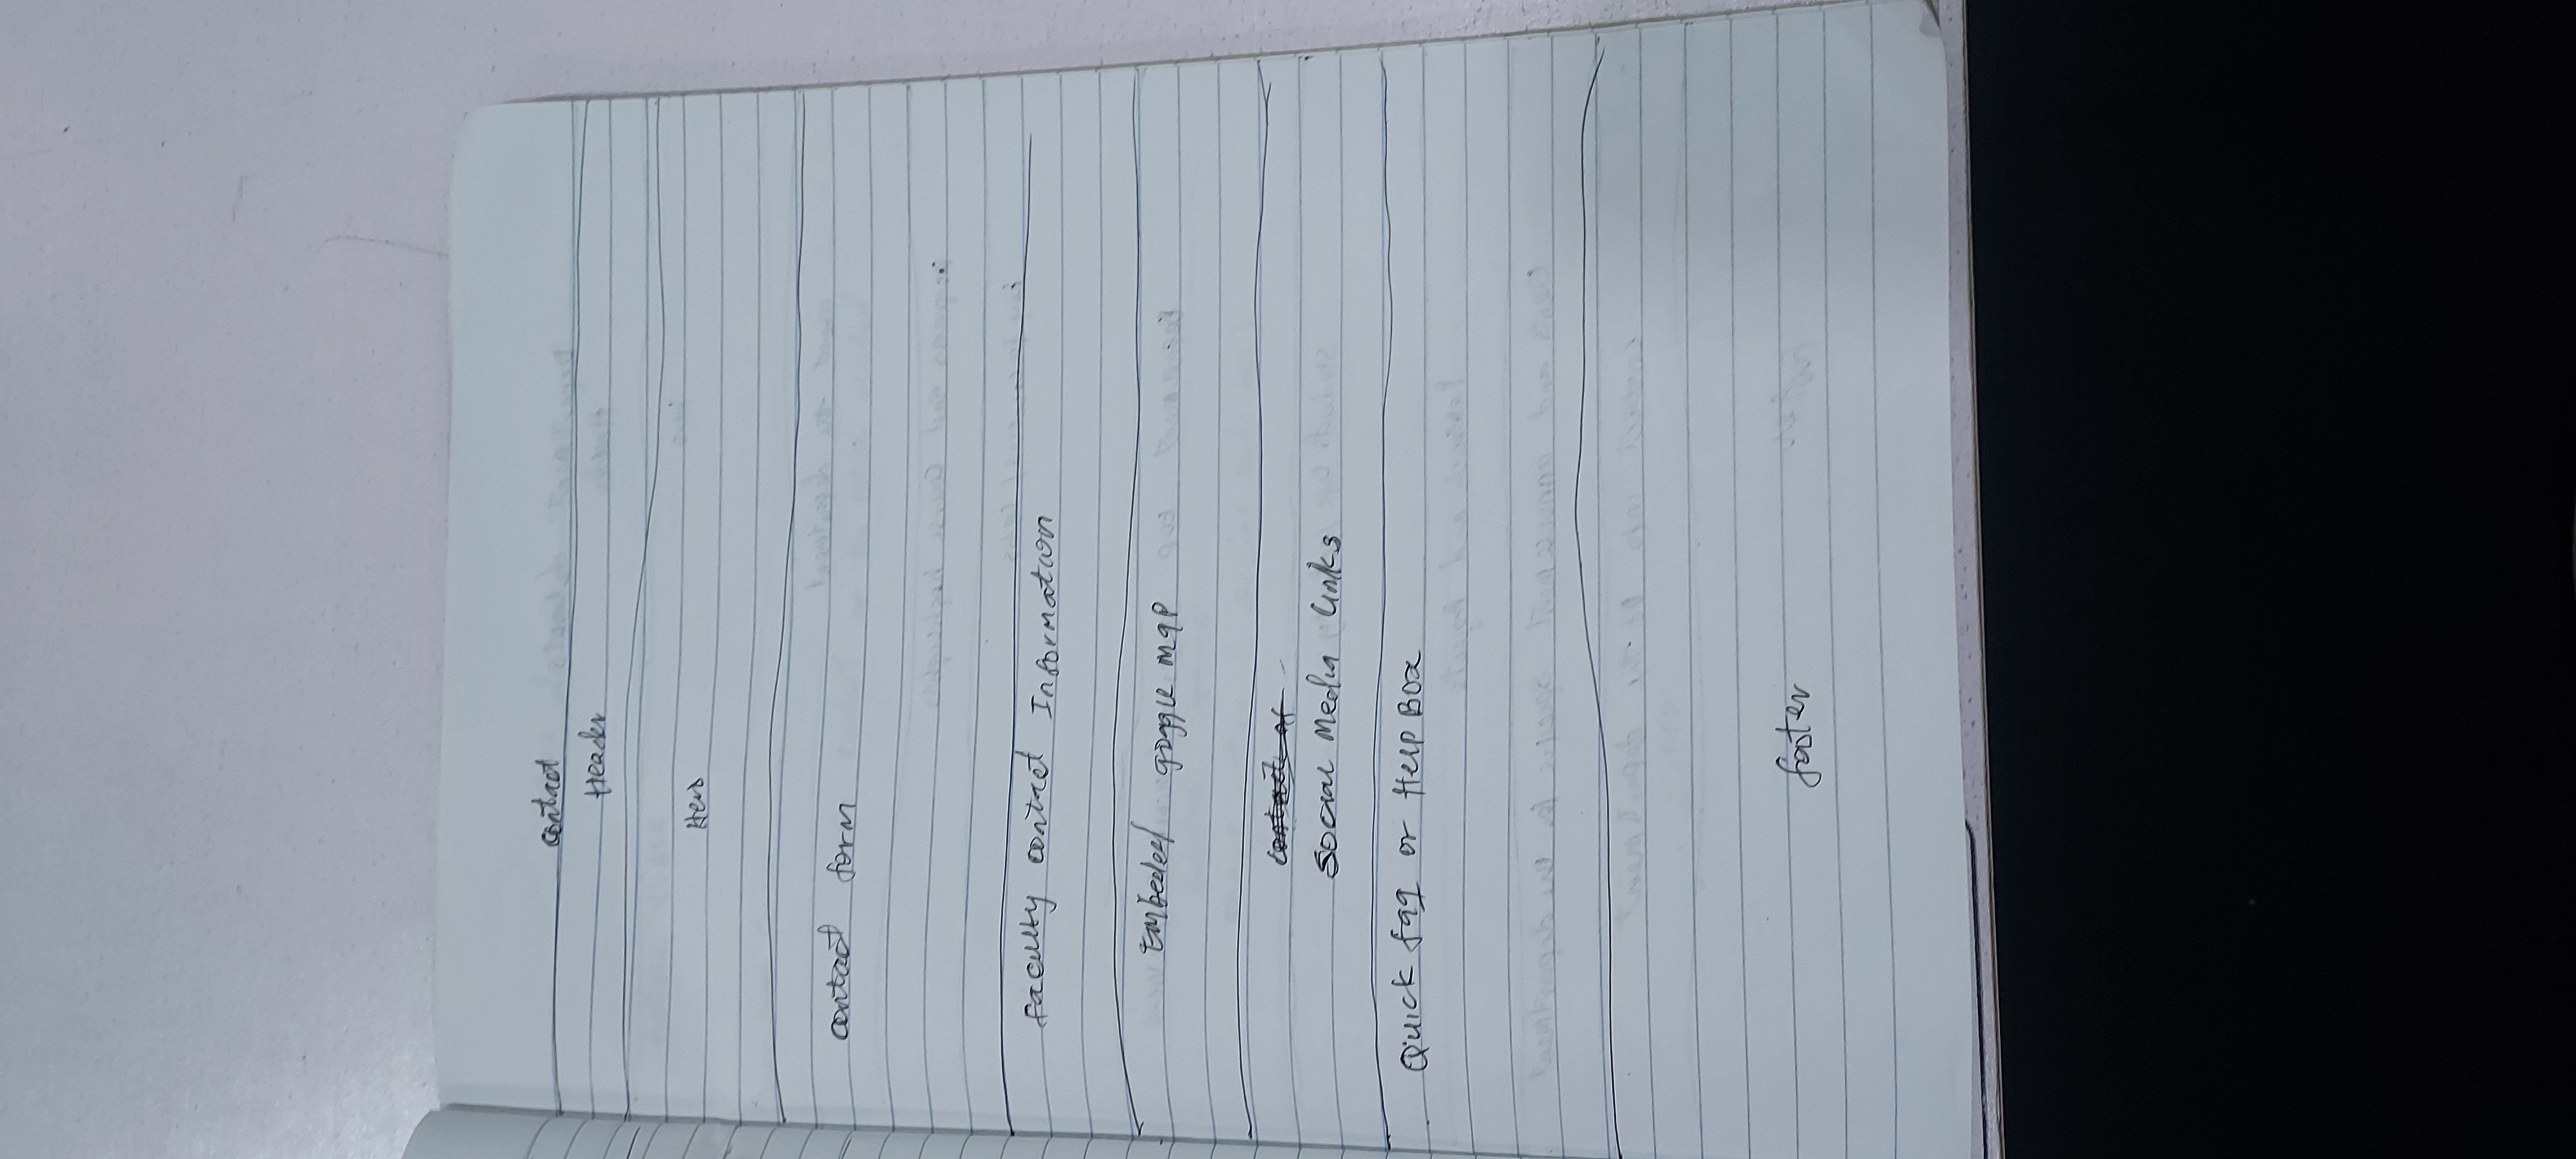 contact
Header
Hero
contact form
faculty contact Information
Embeded google map
social Media links
Quick faq or Help Box
footer